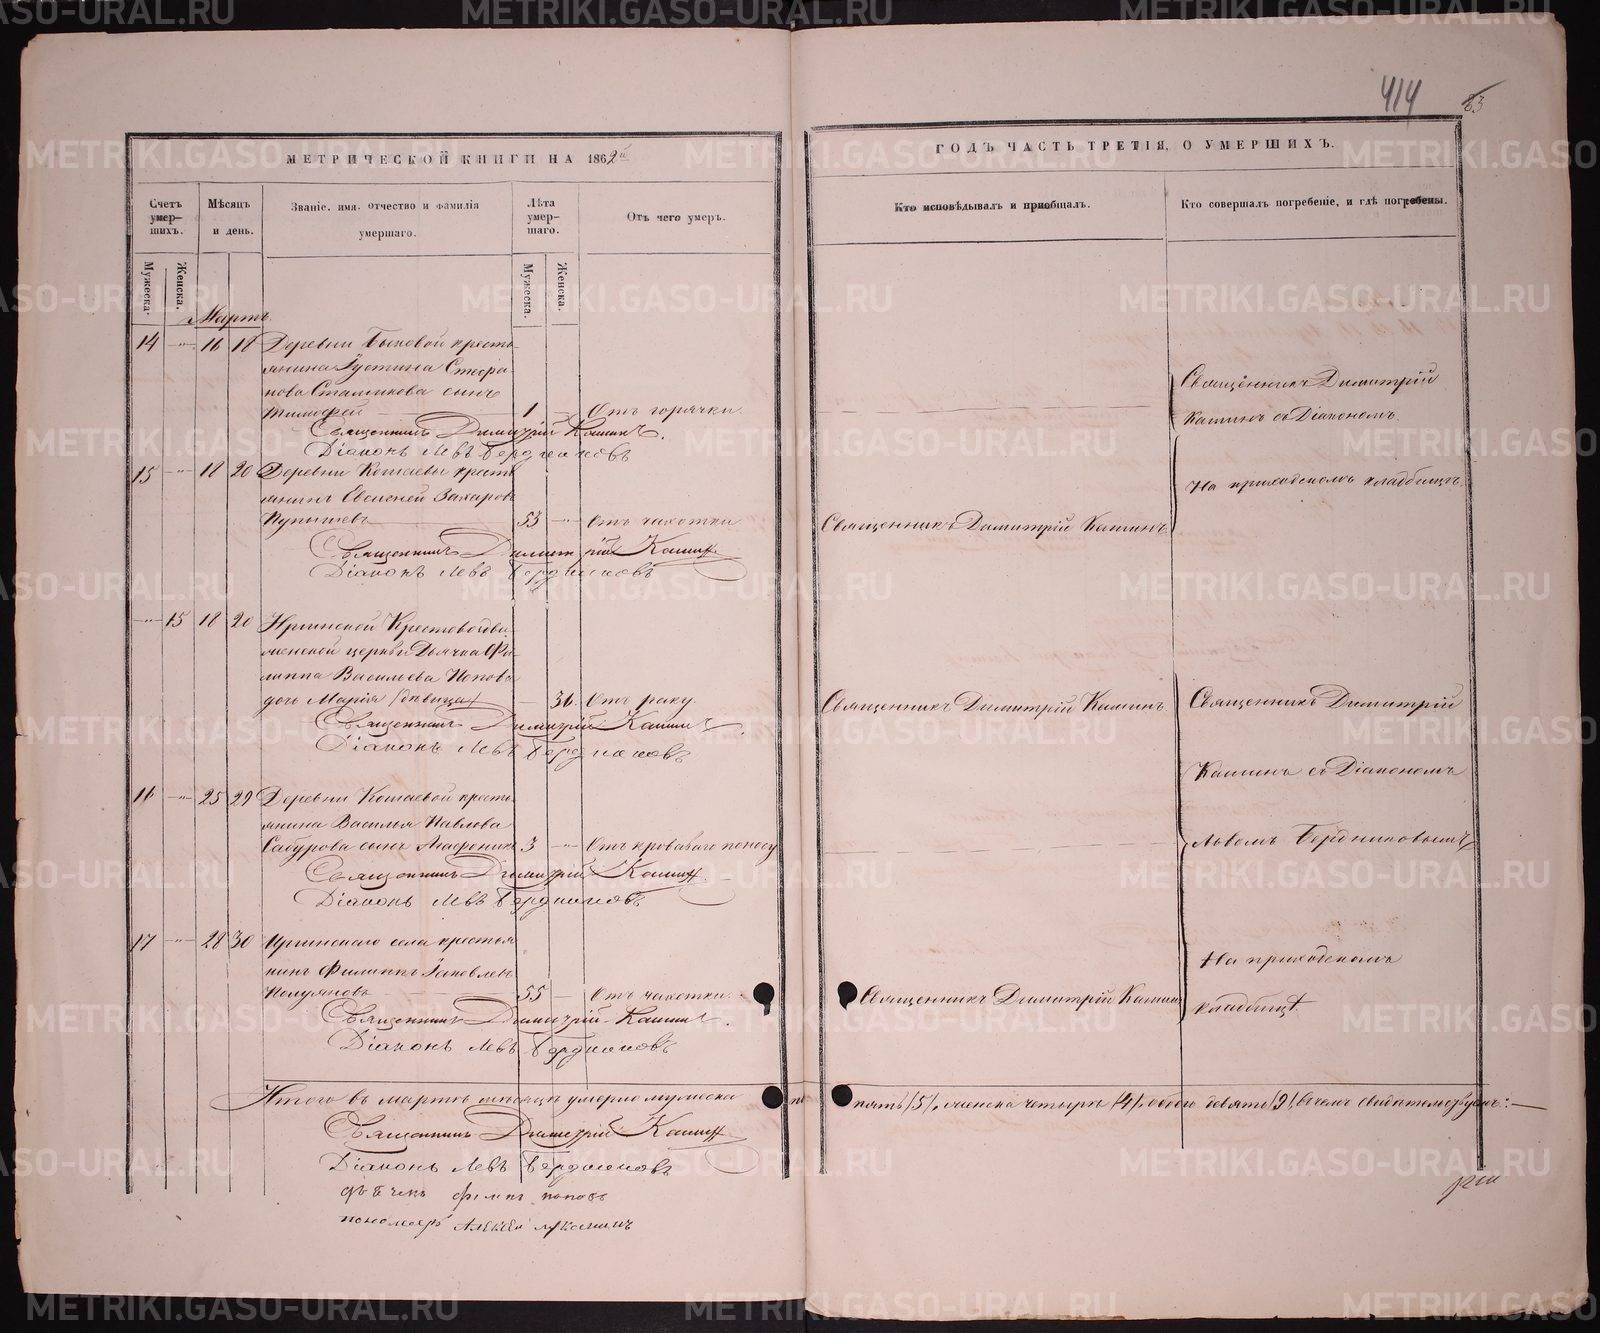 414
83
МЕТРИЧЕСКОЙ КНИГИ НА 1862й
ГОДЪ ЧАСТЬ ТРЕТІЯ, О УМЕРШИХЪ.
Счетъ умер-шихъ.
Мѣсяцъ и день.
Званіе, имя, отчество и фамилія умершаго.
Лѣта умер-шаго.
Отъ чего умеръ.
Кто исповѣдывалъ и пріобщалъ.
Кто совершалъ погребеніе, и гдѣ погребены.
Мужеска.
Женска.
Мужеска.
Женска.
Мартъ
14 " 16 18 Деревни Быковой кресть-
янина Іустина Стефа-
нова Сталикова сынъ
Тимофей 1 Отъ горячки.
Священникъ Димитрій Кашинъ.
Діаконъ Левъ Бердниковъ
15 " 18 20 Деревни Кошаевы кресть-
янинъ Евгеній Захаровъ
Пупышевъ 53 " Отъ чахотки
Священникъ Димитрій Кашинъ
Діаконъ Левъ Бердниковъ
Священникъ Димитрій Кашинъ
Священникъ Димитрій
Кашинъ съ Діакономъ
На приходскомъ кладбищѣ
" 15 18 20 Иргинской Крестовоздви-
женской церкви Дьячка Фи-
липпа Васильева Попова
дочь Марія /дѣвица/ 36. Отъ раку.
Священникъ Димитрій Кашинъ.
Діаконъ Левъ Бердниковъ
Священникъ Димитрій Кашинъ
Священникъ Димитрій
Кашинъ съ Діакономъ
Львомъ Бердниковымъ
16 " 25 29 Деревни Кошаевой кресть-
янина Василья Павлова
Сабурова сынъ Агафоникъ 3 " Отъ кроваваго поносу
Священникъ Димитрій Кашинъ
Діаконъ Левъ Бердниковъ
17 " 28 30 Иргинскаго села крестья-
нинъ Филиппъ Іаковлевъ
Полуяновъ 55 Отъ чахотки.
Священникъ Димитрій Кашинъ.
Діаконъ Левъ Бердниковъ
Священникъ Димитрій Кашинъ
На приходскомъ
кладбищѣ
Итого въ мартѣ мѣсяцѣ умерло мужеска по
пять /5/, женска четыре /4/, обоего девять /9/, въ чемъ свидѣтельствуемъ:
Священникъ Димитрій Кашинъ
Діаконъ Левъ Бердниковъ
дьячекъ Филипъ Поповъ
пономарь Алексѣй
METRIKI.GASO-URAL.RU